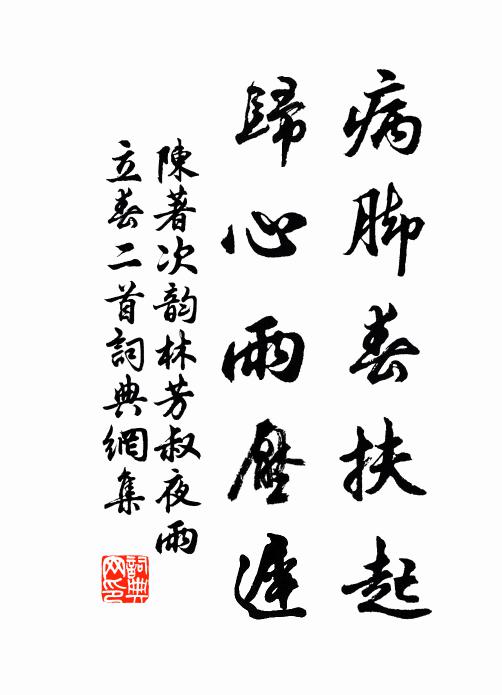 病脚春扶起
歸心雨壓遲
陳著次韵林芳叔夜雨
立春二首詞典網集
詞典网印